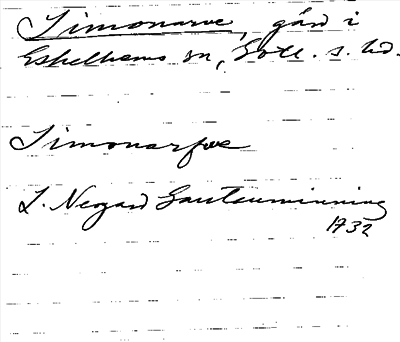 Simonarve, gård i
Eskelhems sn, Gotl. s. hd.
Simonarfve
L. Neogard Gautauminning
1732